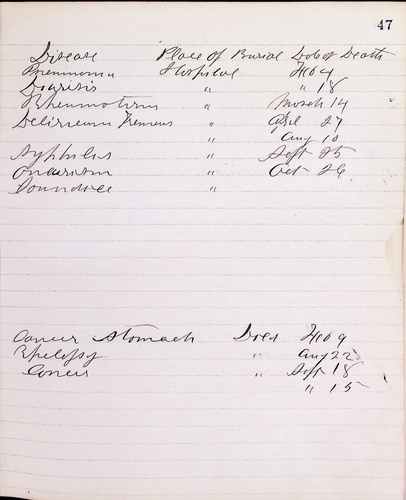 47
Disease Place of Burial Dob of Death
Pneumonia Hospital Feb 4
" " 18
Rheumotism " March 14
Delireum Tremens " Apl 27
" Aug 10
Syphilis " Sept 25
" Oct 26
"
Cancer Stomach Died Feb 9
Epilepsy " Aug 22
Cancer " Sept 18
" 15